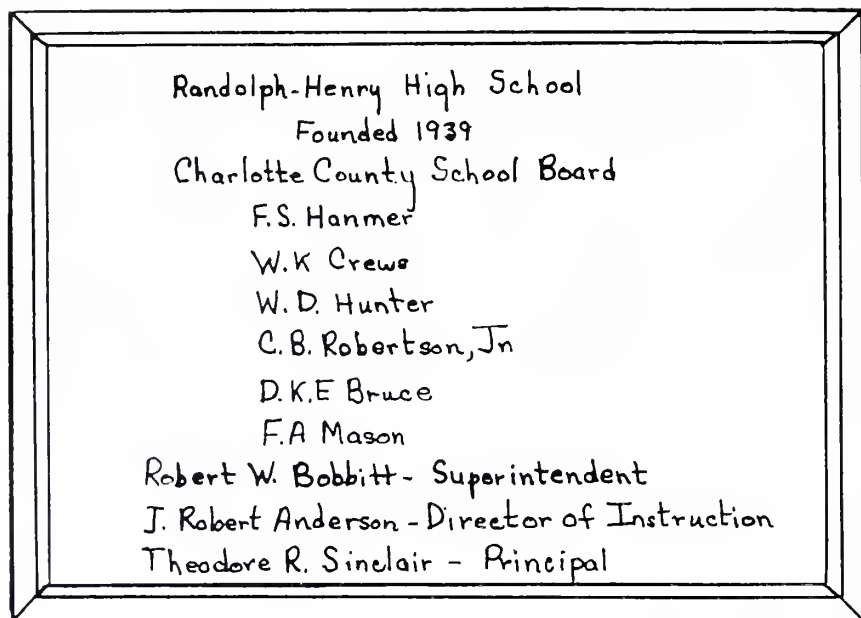 Randolph-Henry High School
Founded 1939
Charlotte County School Board
F.S. Hanmer
W.K Crews
W.D. Hunter
C.B. Robertson, Jr
D.K.E Bruce
F.A Mason
Robert W. Bobbitt - Superintendent
J. Robert Anderson - Director of Instruction
Theodore R. Sinclair - Principal